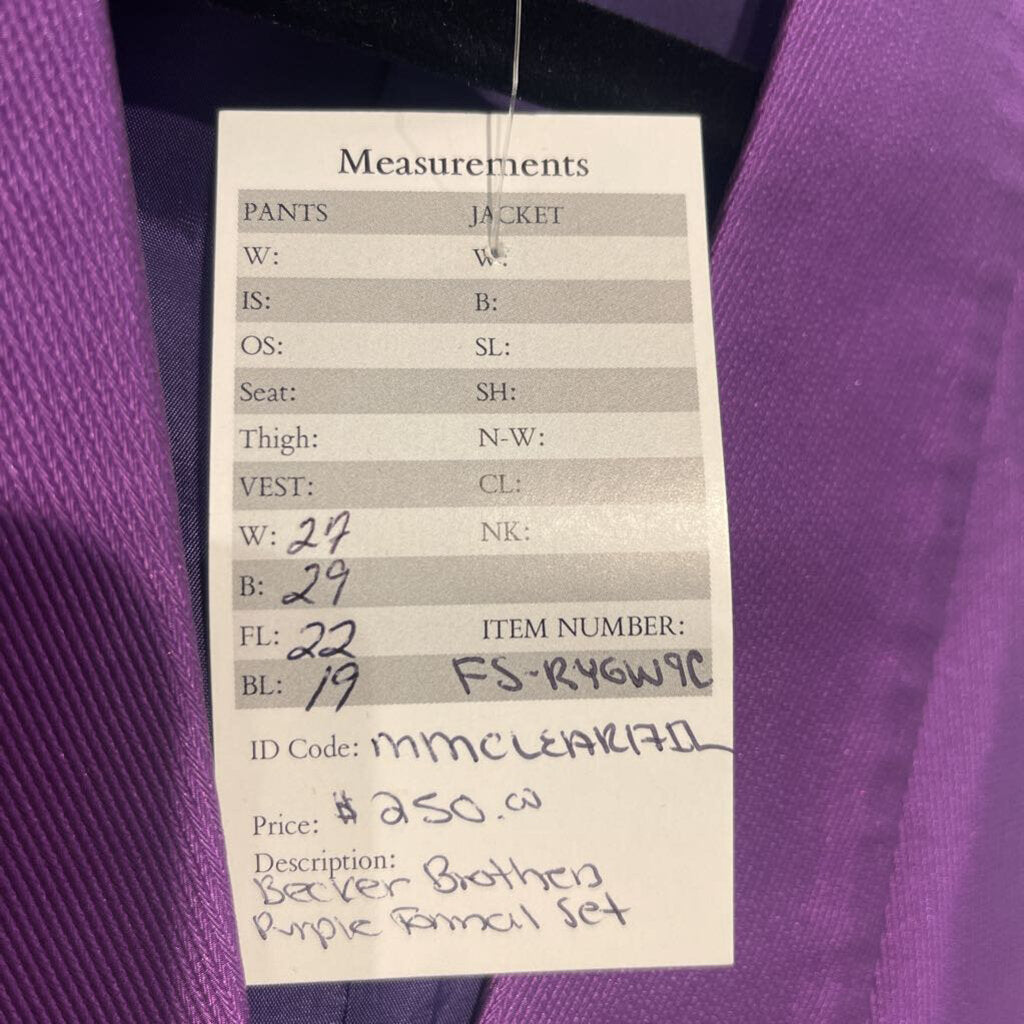 Measurements
PANTS JACKET
W: W:
IS: B:
OS: SL:
Seat: SH:
Thigh: N-W:
VEST: CL:
W: 27 NK:
B: 29
FL: 22 ITEM NUMBER:
BL: 19 FS-R4GW9C
ID Code: MMCLEAR17IL
Price: $250.00
Description:
Becker Brothers
Purple Formal Set